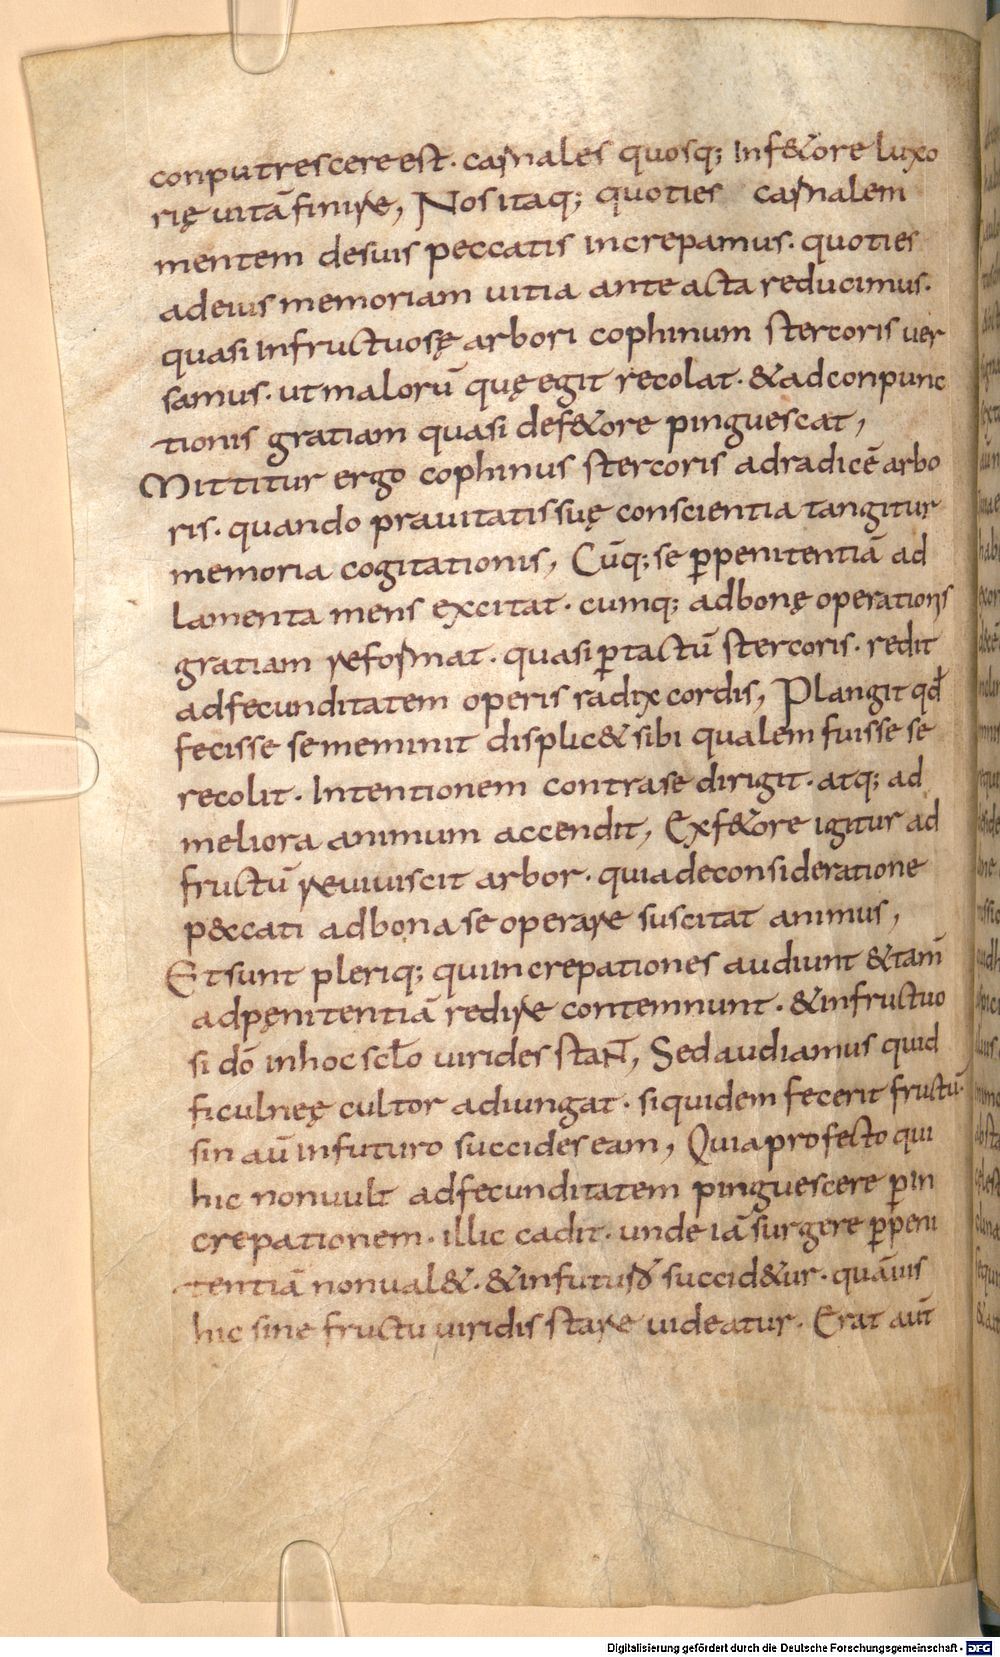 conputrescere est· carnales quosq; Inf&ore luxo
rię uitā finire, Nos itaq; quoties carnalem
mentem desuis peccatis increpamus· quoties
adeius memoriam uitia ante acta reducimus·
quasi Infructuosę arbori cophinum stercoris uer
samus· ut malorū quę egit recolat· &adconpunc
tionis gratiam quasi def&ore pinguescat,
Mittitur ergo cophinus stercoris adradicē arbo
ris· quando prauitatis suę conscientia tangitur
memoria cogitationis, Cūq; se ꝑpenitentiā ad
lamenta mens excitat· cumq; adbonę operationis
gratiam reformat· quasi ꝑtactū stercoris· redit
adfecunditatem operis radix cordis, Plangit qđ
fecisse se meminit displic& sibi qualem fuisse se
recolit· Intentionem contra se dirigit· atq; ad
meliora animum accendit, Exf&ore igitur ad
fructū reuiuiscit arbor· quia deconsideratione
p&cati adbona se operare suscitat animus,
Et sunt pleriq; qui increpationes audiunt &tam̄
adpęnitentiā redire contemnunt· &infructuo
si dō in hoc scło uirides stant, Sed audiamus quid
ficulneę cultor adiungat· siquidem fecerit fructū·
sin aū infuturo succides eam, Quia profecto qui
hic non uult adfecunditatem pinguescere ꝑin
crepationem· illic cadit· unde iā surgere ꝑpeni
tentiā non ual&· &infuturo succid&ur· quāuis
hic sine fructu uiridis stare uideatur· Erat aut̄
Digitalisierung gefördert durch die Deutsche Forschungsgemeinschaft - DFG